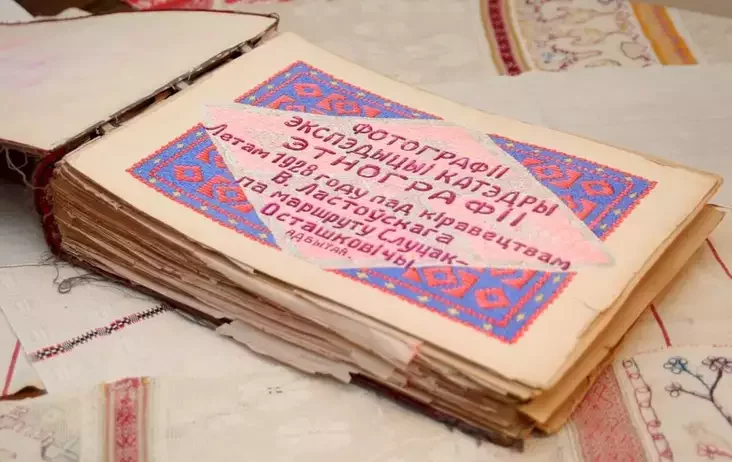 ФОТОГРАФІІ
ЭКСПЭДЫЦЫІ КАТЭДРЫ
ЭТНОГРАФІІ
Летам 1928 году пад кіравецтвам
В. Ластоўскага
па маршруту Случак-
Осташковічы
адбытай.